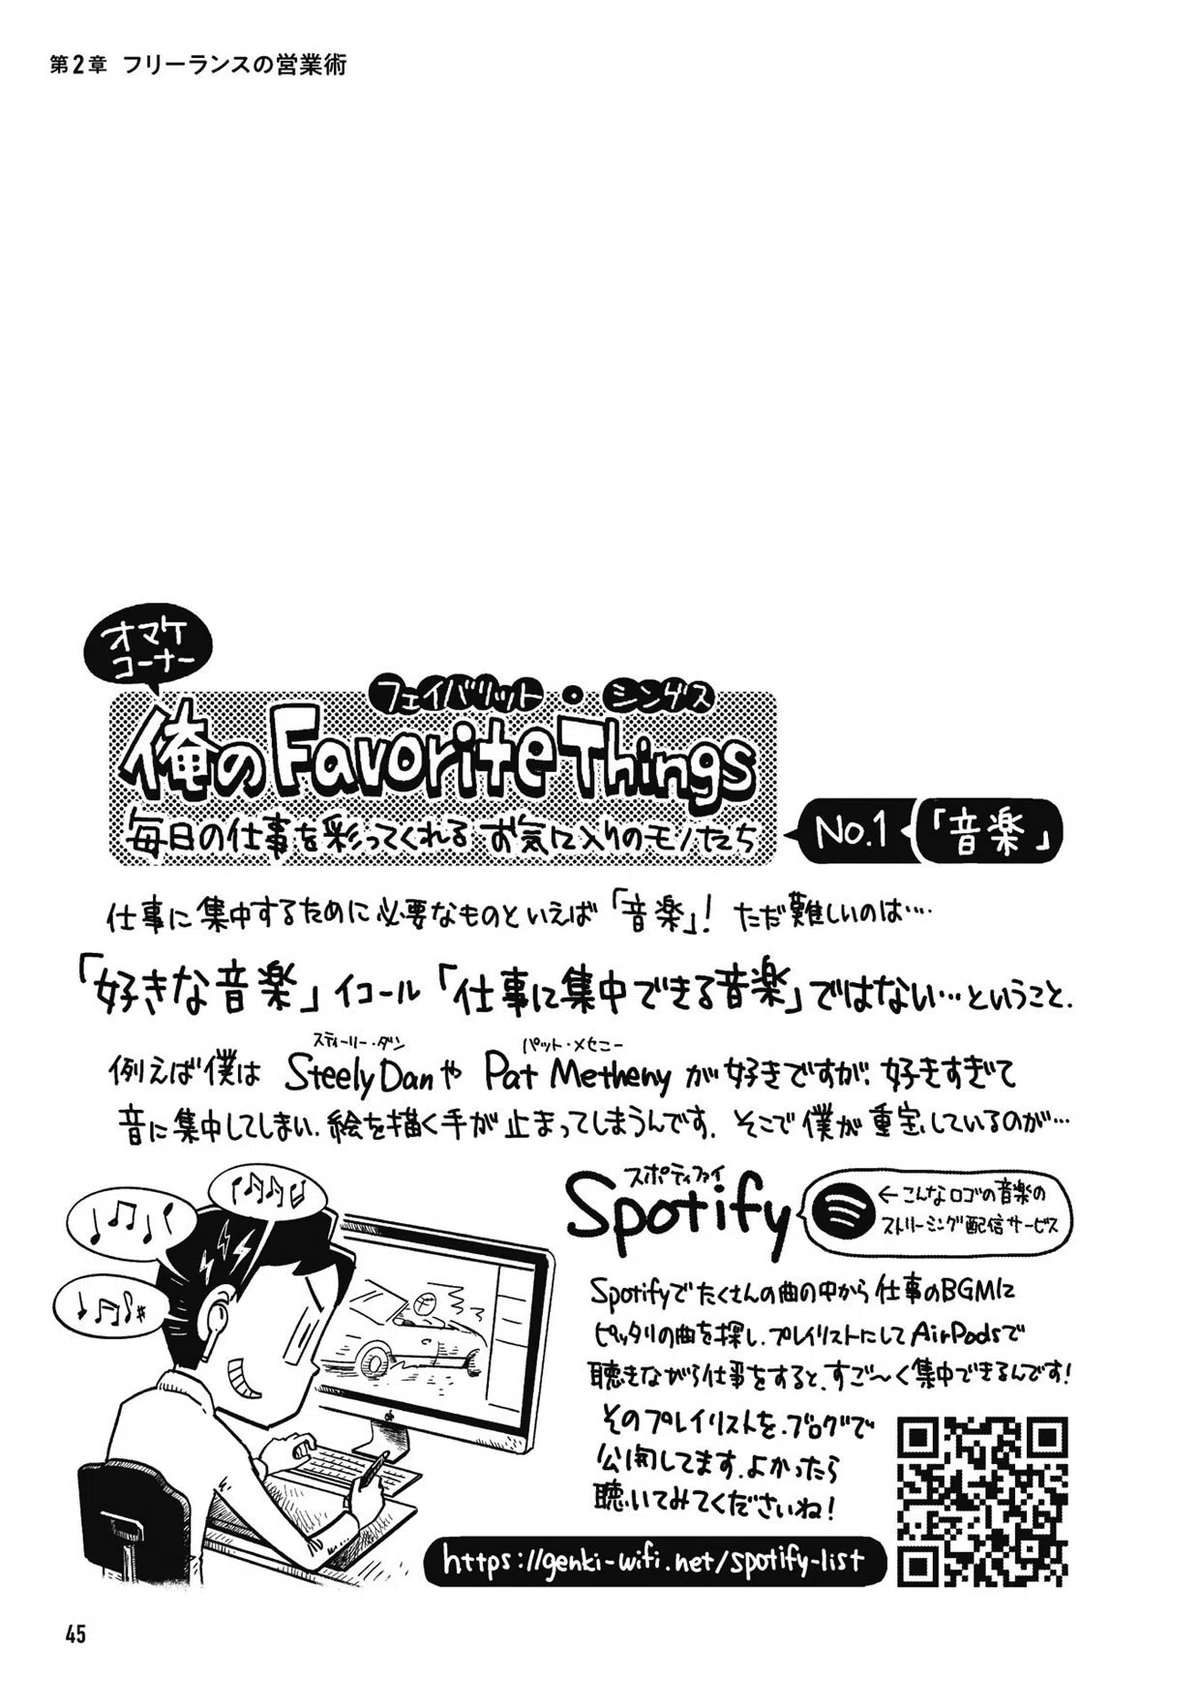 第2章 フリーランスの営業術
オマケ
コーナー
フェイバリット・シングス
俺のFavorite Things
毎日の仕事を彩ってくれる お気に入りのモノたち
No.1 「音楽」
仕事に集中するために必要なものといえば「音楽」! ただ難しいのは…
「好きな音楽」イコール「仕事に集中できる音楽」ではない…ということ.
スティーリー・ダン パット・メセニー
例えば僕は Steely Danや Pat Metheny が好きですが、好きすぎて
音に集中してしまい、絵を描く手が止まってしまうんです. そこで僕が重宝しているのが…
スポティファイ
Spotify
←こんなロゴの音楽の
ストリーミング配信サービス
Spotifyでたくさんの曲の中から仕事のBGMに
ピッタリの曲を探し、プレイリストにしてAirPodsで
聴きながら仕事をすると、すご〜く集中できるんです!
そのプレイリストを、ブログで
公開してます.よかったら
聴いてみてくださいね!
https://genki-wifi.net/spotify-list
45